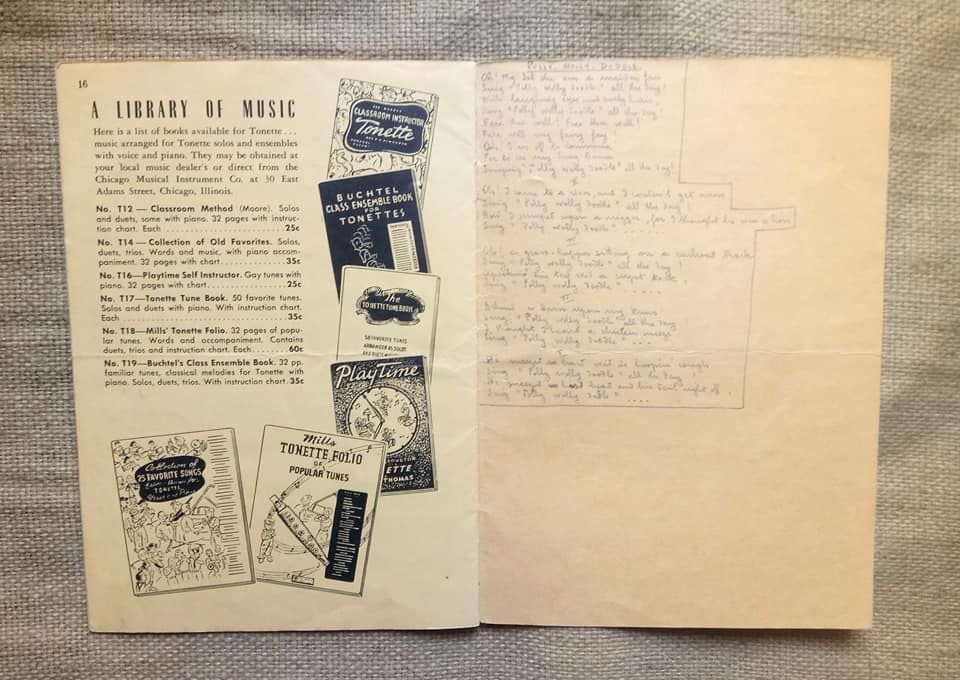 16
A LIBRARY OF MUSIC
Here is a list of books available for Tonette...
music arranged for Tonette solos and ensembles
with voice and piano. They may be obtained at
your local music dealer's or direct from the
Chicago Musical Instrument Co. at 30 East
Adams Street, Chicago, Illinois.
No. T12 — Classroom Method (Moore). Solos
and duets, some with piano. 32 pages with instruc-
tion chart. Each ........ 25c
No. T14 — Collection of Old Favorites. Solos,
duets, trios. Words and music, with piano accom-
paniment. 32 pages with chart ........ 35c
No. T16—Playtime Self Instructor. Gay tunes with
piano. 32 pages with chart ........ 25c
No. T17—Tonette Tune Book. 50 favorite tunes.
Solos and duets with piano. With instruction chart.
Each ........ 35c
No. T18—Mills' Tonette Folio. 32 pages of popu-
lar tunes. Words and accompaniment. Contains
duets, trios and instruction chart. Each ........ 60c
No. T19—Buchtel's Class Ensemble Book. 32 pp.
familiar tunes, classical melodies for Tonette with
piano. Solos, duets, trios. With instruction chart. 35c
CLASSROOM INSTRUCTOR
Tonette
BUCHTEL
CLASS ENSEMBLE BOOK
FOR
TONETTES
The
TONETTE TUNE BOOK
50 FAVORITE TUNES
ARRANGED AS SOLOS
Playtime
THOMAS
Collection of
25 FAVORITE SONGS
TONETTE
Mills
TONETTE FOLIO
OF
POPULAR TUNES
POLLY WOLLY DOODLE
Oh! My Sal she am a maiden fair
Sing "Polly Wolly Doodle" all the day!
With laughing eyes and curly hair
Sing "Polly Wolly Doodle" all the day!
Fare thee well! Fare thee well!
Fare well my fairy fay!
Oh, I'm off to Louisiana
For to see my Susy Anna
Singing "Polly Wolly Doodle" all the day!
Oh! I came to a river, and I couldn't get across
Sing "Polly Wolly Doodle" all the day!
I jumped upon a nigger, for I thought he was a hoss
Sing "Polly Wolly Doodle" ......
Oh! a grass-hopper sitting on a railroad track
Sing "Polly Wolly Doodle" all the day!
Sing "Polly Wolly Doodle" ......
Behind a barn upon my knees
Sing "Polly Wolly Doodle" all the day!
I thought I heard a chicken sneeze
Sing "Polly Wolly Doodle" ....
He sneezed so hard wid de hoopin cough
Sing "Polly Wolly Doodle" all the day!
He sneezed his head and his tail right off
Sing "Polly Wolly Doodle" ....